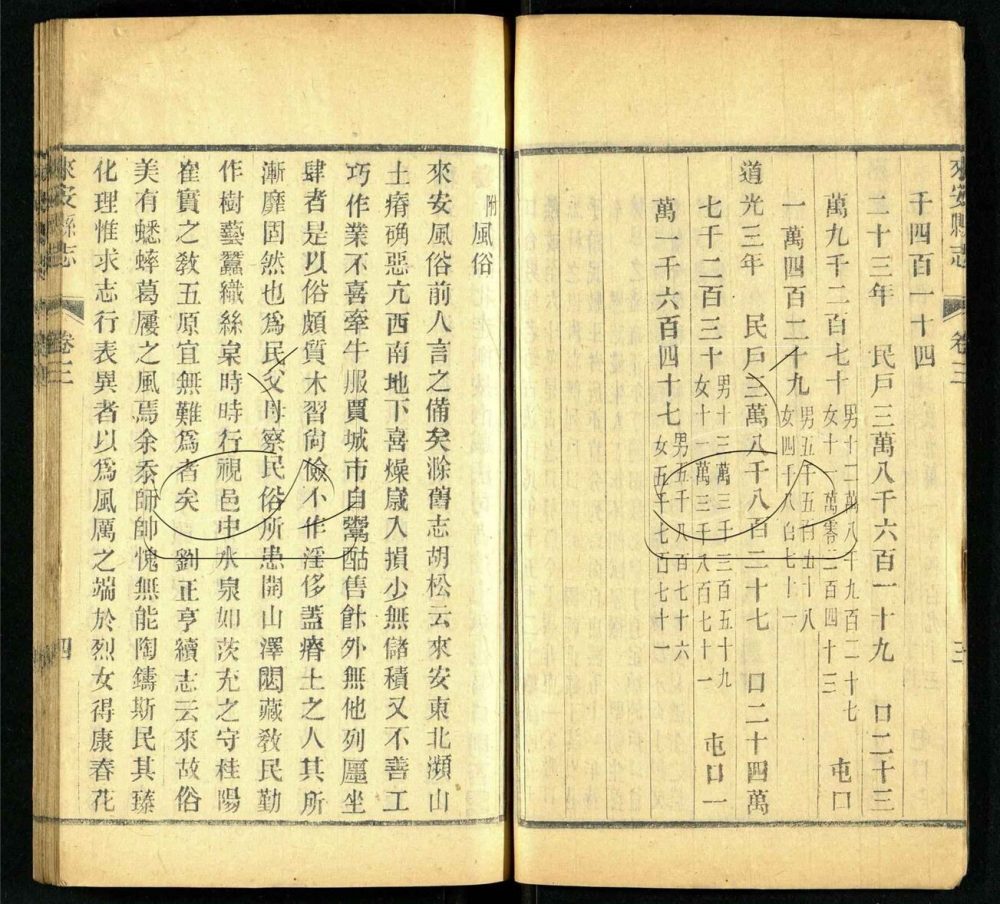 來安縣志 卷三 三
千四百一十四
二十三年 民戶三萬八千六百一十九 口二十三
萬九千二百七十 男十二萬八千九百二十七 女十一萬零三百四十三 屯口
一萬四百二十九 男五千五百五十八 女四千八百七十一
道光三年 民戶三萬八千八百二十七 口二十四萬
七千二百三十 男十三萬三千三百五十九 女十一萬三千八百七十一 屯口一
萬一千六百四十七 男五千八百七十六 女五千七百七十一
附風俗
來安風俗前人言之備矣滁舊志胡松云來安東北瀕山
土瘠确惡亢西南地下喜燥嵗入損少無儲積又不善工
巧作業不喜牽牛服賈城市自鬻酤售飰外無他列廛坐
肆者是以俗頗質木習尙儉不作淫侈蓋瘠土之人其所
漸靡固然也爲民父母察民俗所患開山澤閟藏敎民勤
作樹藝蠶織絲枲時時行視邑中水泉如茨充之守桂陽
崔實之敎五原宜無難爲者矣 劉正亨續志云來故俗
美有蟋蟀葛屨之風焉余忝師帥愧無能陶鑄斯民其臻
化理惟求志行表異者以爲風厲之端於烈女得康春花
來安縣志 卷三 四